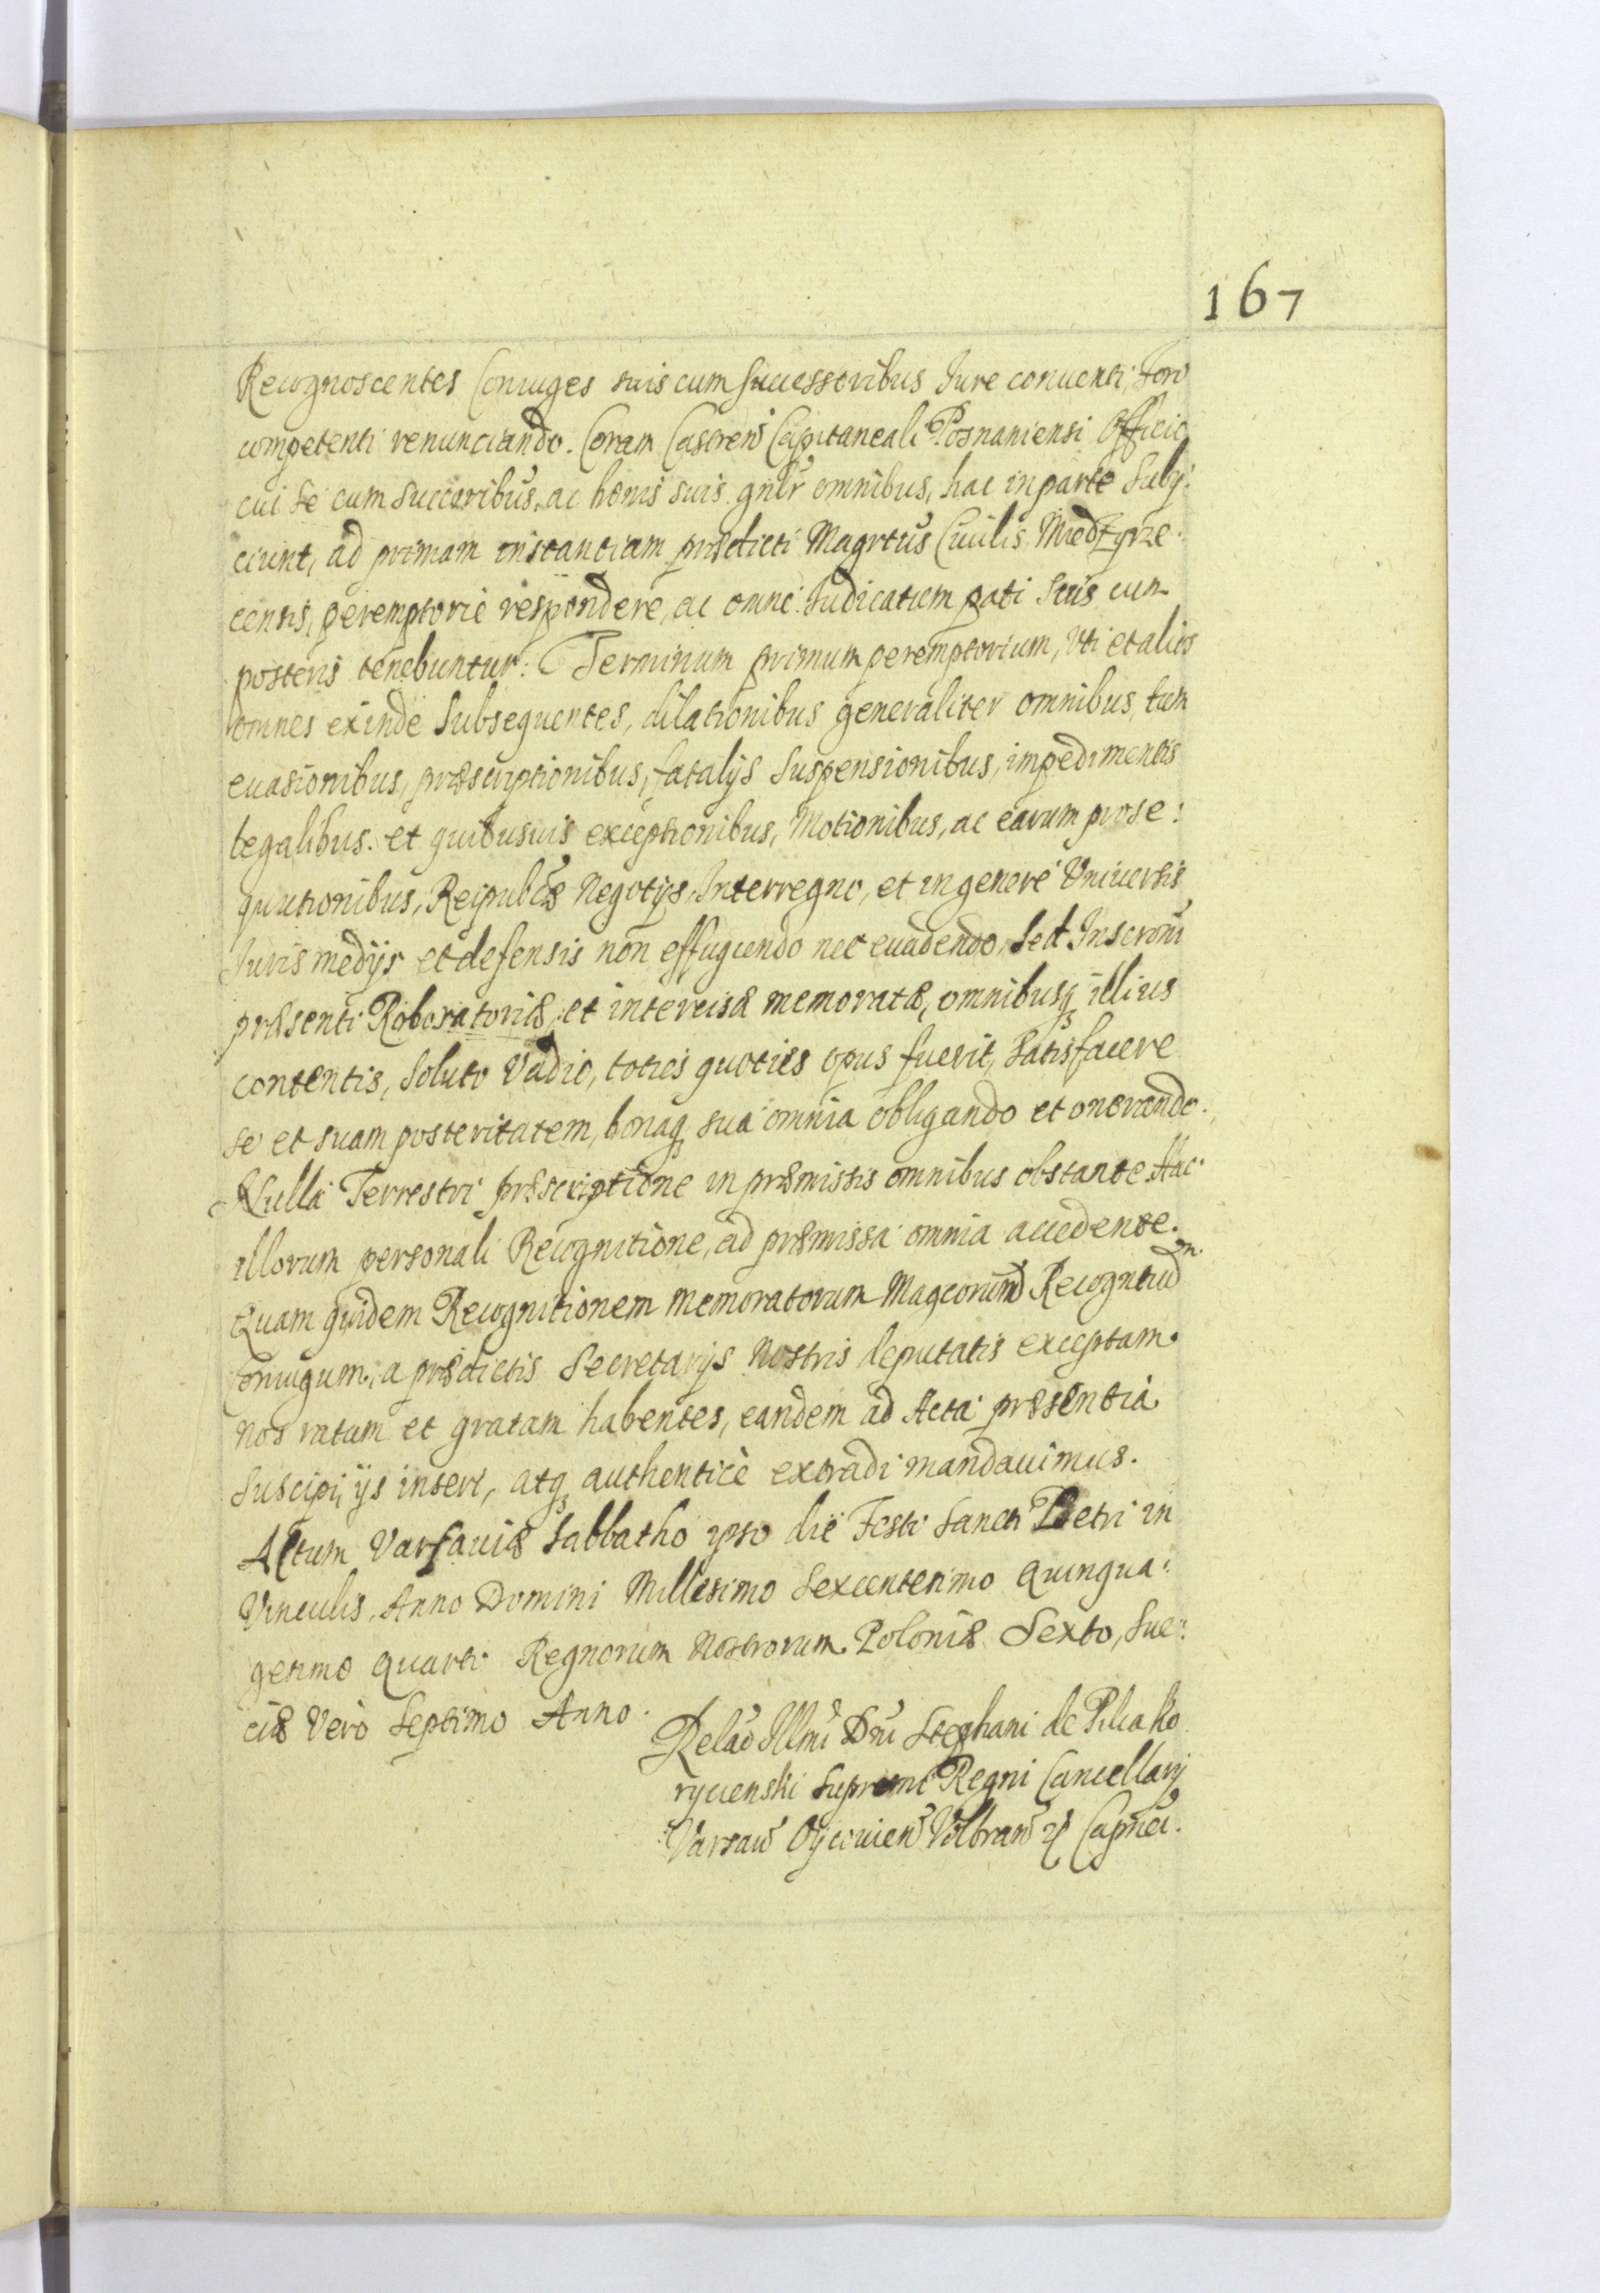 167
Recognoscentes Coniuges suis cum successoribus Iure conuenti, foro
competenti renunciando. Coram Castren̄ Capitaneali Posnaniensi Officio
cui se cum succoribus, ac bonis suis gnlr omnibus, hac in parte Subij:
ciunt, ad primam instantiam prædicti Magrtus Ciuilis Miedzyrze:
censis, peremptorie respondere, ac omne Iudicatum pati suis cum
posteris tenebuntur. Terminum primum peremptorium, vti et alios
omnes exinde subsequentes, dilationibus generaliter omnibus, tum
euasionibus, præscriptionibus, fatalijs suspensionibus, impedimentis
legalibus. et quibusuis exceptionibus, Motionibus, ac earum prose:
quutionibus, Reipublcæ Negotijs, Interregno, et in genere Vniuersis
Iuris medijs et defensis non effugiendo nec euadendo, sed Inscrōni
præsenti Roboratoriæ, et intercisæ memoratæ, omnibusq illius
contentis, soluto Vadio, toties quoties opus fuerit, satisfacere
se et suam posteritatem, bonaq sua omnia obligando et onerando.
Nulla Terrestri præscriptione in præmissis omnibus obstante Hac
illorum personali Recognitione, ad præmissa omnia accedente.
Quam quidem Recognitionem memoratorum Magcorum Recogntium
Coniugum, a prædictis Secretarijs Nostris deputatis exceptam
nos ratam et gratam habentes, eandem ad Acta præsentia
suscipi, ijs inseri, atq authenticè extradi mandauimus.
Actum Varsauiæ Sabbatho ipso die Festi Sancti Petri in
Vinculis, Anno Domini Millesimo Sexcentesimo Quinqua:
gesimo Quarto Regnorum Nostrorum Poloniæ Sexto, Sue:
ciæ Verò Septimo Anno.
Relāo Illmi Dni Stephani de Pilca Ko
rycienski Supremi Regni Cancellarij
Varsaw Oycouien Volbram Capnei.